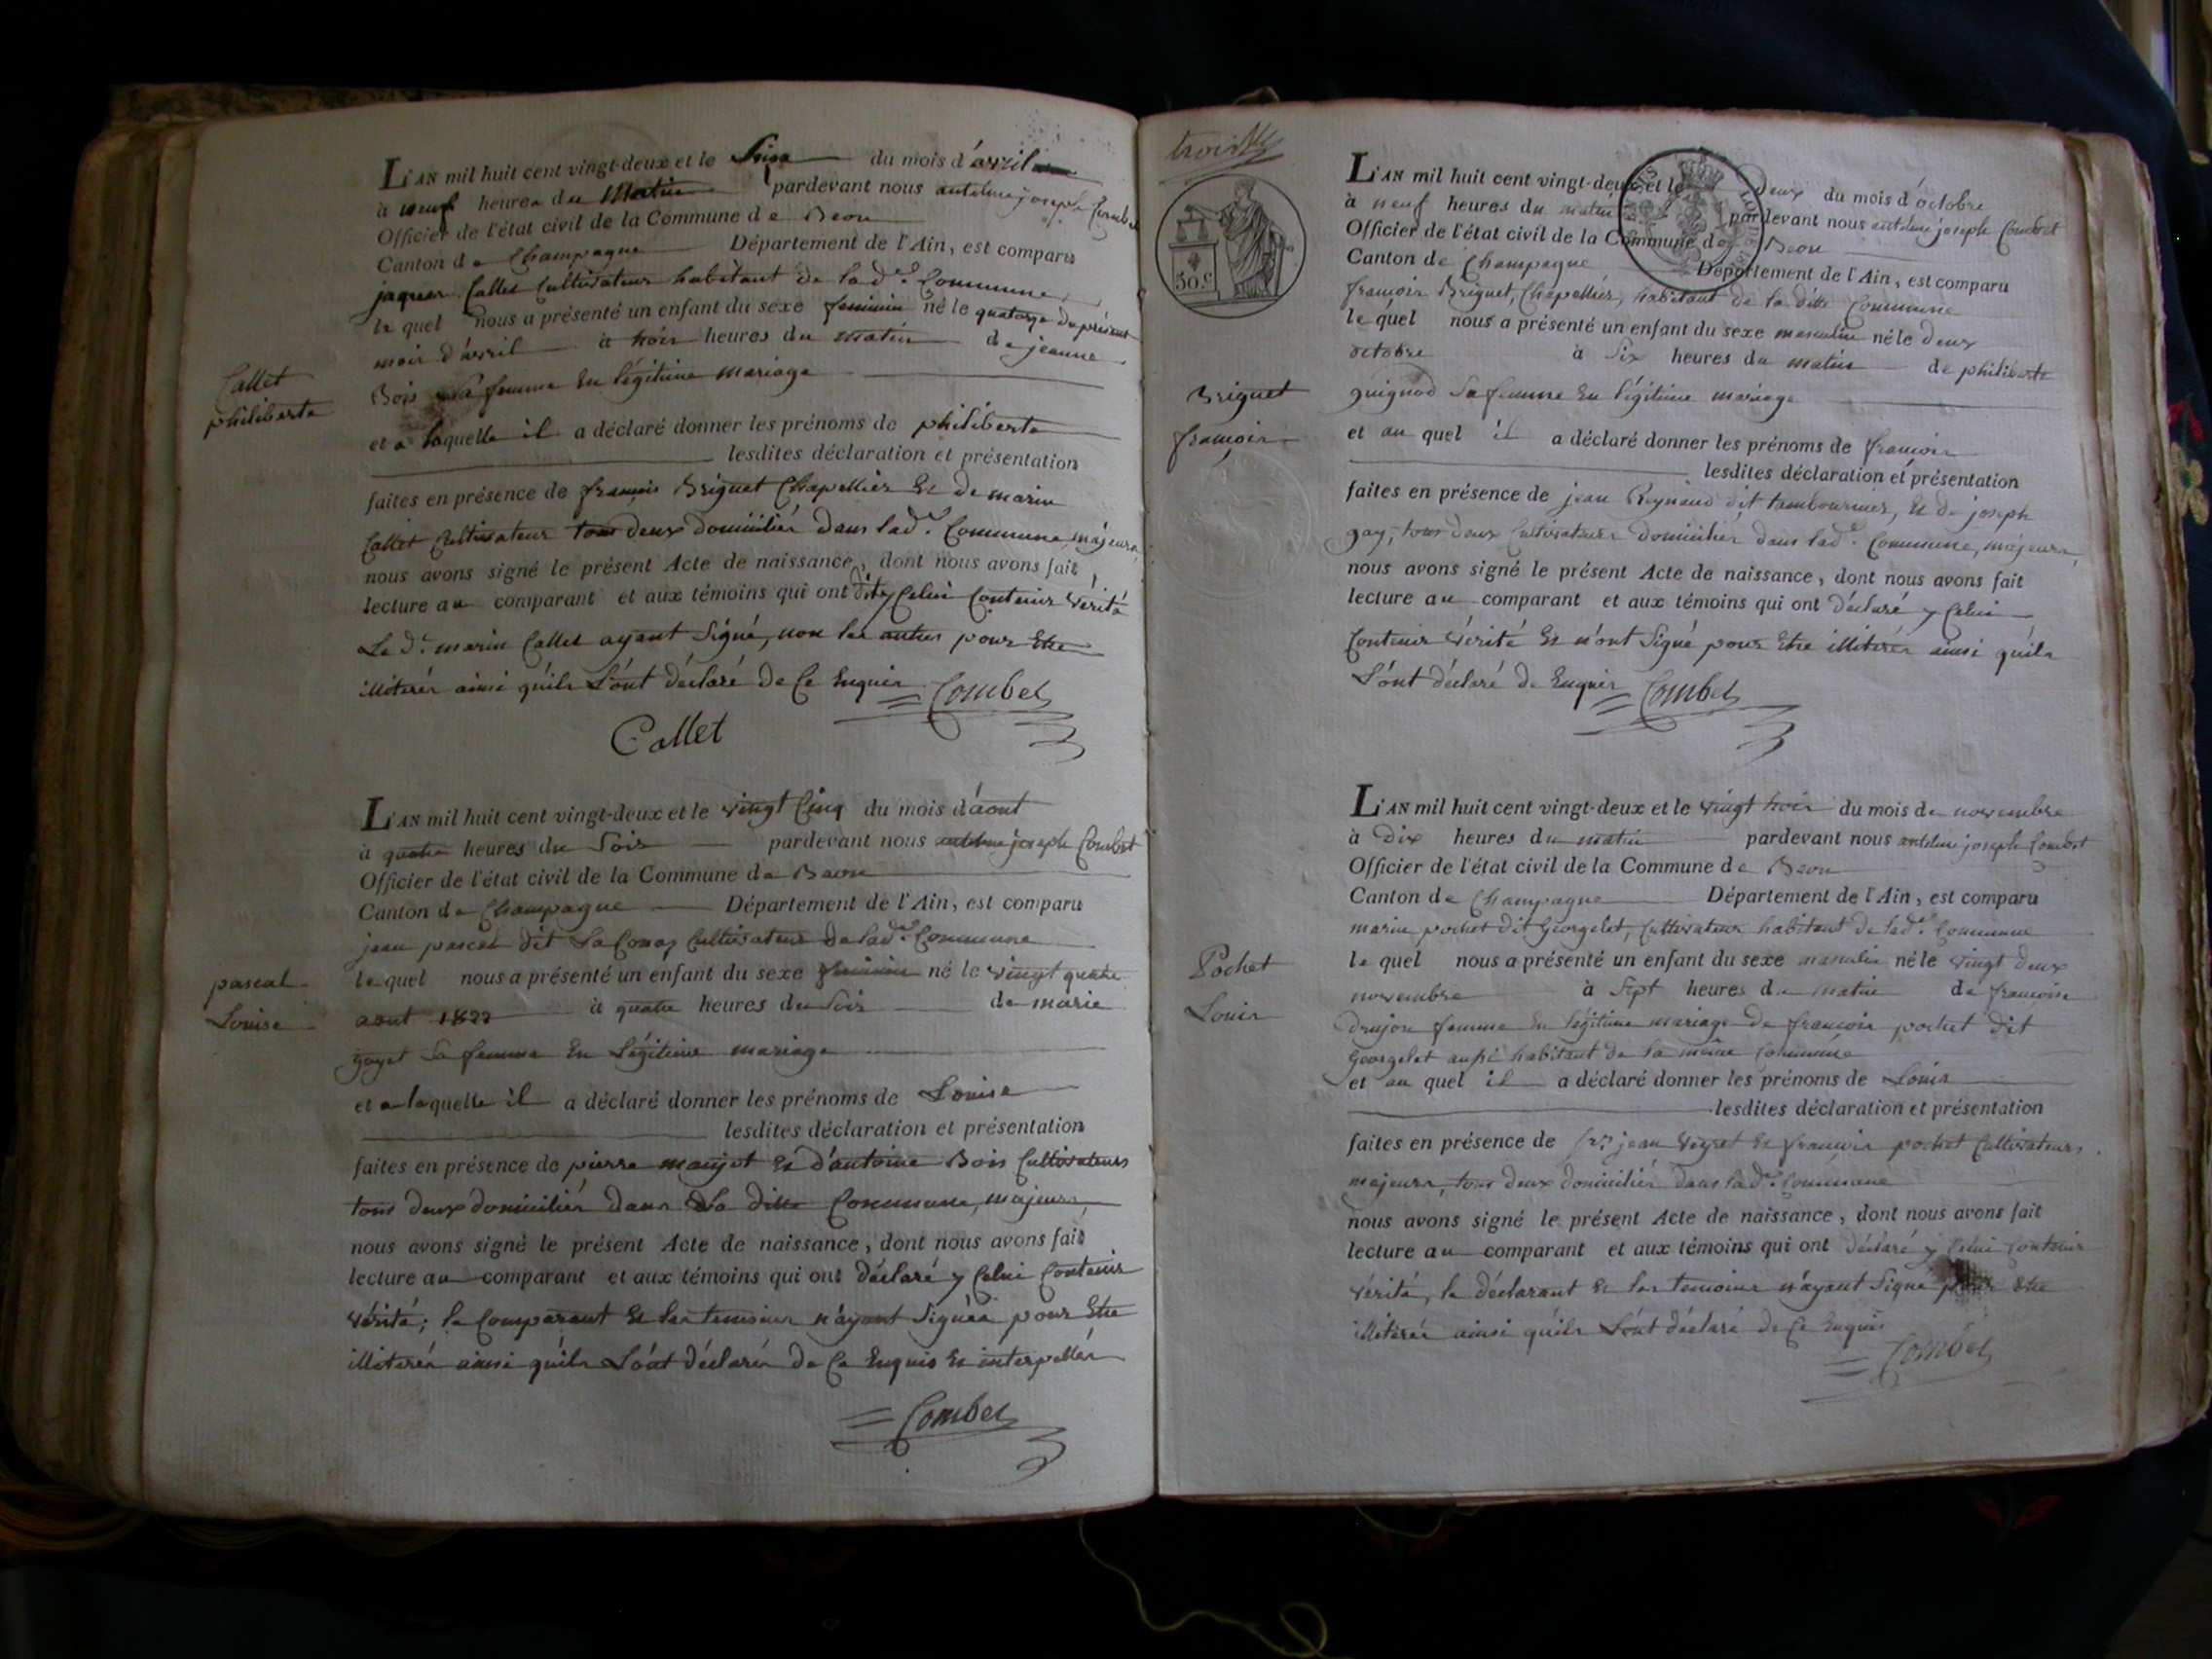 L'AN mil huit cent vingt-deux et le Seize du mois d'avril
à neuf heures du Matin pardevant nous antelme joseph Combet
Officier de l'état civil de la Commune de Beon
Canton de Champagne Département de l'Ain, est comparu
jaques Callet Cultivateur habitant de lad.e Commune
le quel nous a présenté un enfant du sexe feminin né le quatorze du présent
mois d'avril à trois heures du matin de jeanne
Bois sa femme En légitime mariage
Callet
philiberte
et a laquelle il a déclaré donner les prénoms de philiberte
lesdites déclaration et présentation
faites en présence de françois Briguet Chapellier Et de marin
Callet Cultivateur tous deux domiciliés dans lad.e Commune, majeurs,
nous avons signé le présent Acte de naissance, dont nous avons fait
lecture au comparant et aux témoins qui ont dit y Celui Contenir vérité
Le d.t marin Callet ayant Signé, non les autres pour Etre
illiterés ainsi qu'ils L'ont déclaré de Ce Enquis Combet
Callet
L'AN mil huit cent vingt-deux et le vingt Cinq du mois d'aout
à quatre heures du Soir pardevant nous antelme joseph Combet
Officier de l'état civil de la Commune de Beon
Canton de Champagne Département de l'Ain, est comparu
jean pascal dit La Cultivateur de lad.e Commune
le quel nous a présenté un enfant du sexe feminin né le vingt quatre
pascal
Louise
aout 1822 à quatre heures du Soir de marie
goyet Sa femme En Légitime mariage
et a laquelle il a déclaré donner les prénoms de Louise
lesdites déclaration et présentation
faites en présence de pierre manjot Et d'antoine Bois Cultivateurs
tous deux domiciliés dans La ditte Commune, majeurs,
nous avons signé le présent Acte de naissance, dont nous avons fait
lecture au comparant et aux témoins qui ont déclaré y Celui Contenir
vérité; le Comparant Et les temoins n'ayant Signés pour Etre
illiterés ainsi qu'ils L'ont déclarés de Ce Enquis Et interpellés
Combet
trois
50.c
L'AN mil huit cent vingt-deux et le deux du mois d'octobre
à neuf heures du matin pardevant nous antelme joseph Combet
Officier de l'état civil de la Commune de Beon
Canton de Champagne Département de l'Ain, est comparu
françois Briguet, Chapellier, habitant de la ditte Commune
le quel nous a présenté un enfant du sexe masculin né le deux
octobre à Six heures du matin de philiberte
Briguet
françois
guignod Sa femme En légitime mariage
et au quel il a déclaré donner les prénoms de françois
lesdites déclaration et présentation
faites en présence de jean Reynaud dit tambournier, Et de joseph
gay, tous deux Cultivateurs domiciliés dans lad.e Commune, majeurs,
nous avons signé le présent Acte de naissance, dont nous avons fait
lecture au comparant et aux témoins qui ont déclaré y Celui
Contenir vérité Et n'ont Signé pour Etre illiterés ainsi qu'ils
L'ont déclaré de Enquis Combet
L'AN mil huit cent vingt-deux et le vingt trois du mois de novembre
à Dix heures du matin pardevant nous antelme joseph Combet
Officier de l'état civil de la Commune de Beon
Canton de Champagne Département de l'Ain, est comparu
marin pochet dit Georgelet, Cultivateur habitant de lad.e Commune
le quel nous a présenté un enfant du sexe masculin né le vingt deux
Pochet
Louis
novembre à Sept heures du matin de françoise
Drujon femme En légitime mariage de françois pochet dit
Georgelet aussi habitant de la même Commune
et au quel il a déclaré donner les prénoms de Louis
lesdites déclaration et présentation
faites en présence de jean veyret Et françois pochet Cultivateurs
majeurs, tous deux domiciliés dans lad.e Commune
nous avons signé le présent Acte de naissance, dont nous avons fait
lecture au comparant et aux témoins qui ont déclaré y Celui Contenir
vérité, le déclarant Et les temoins n'ayant Signé pour Etre
illiterés ainsi qu'ils L'ont déclaré de Ce Enquis
Combet